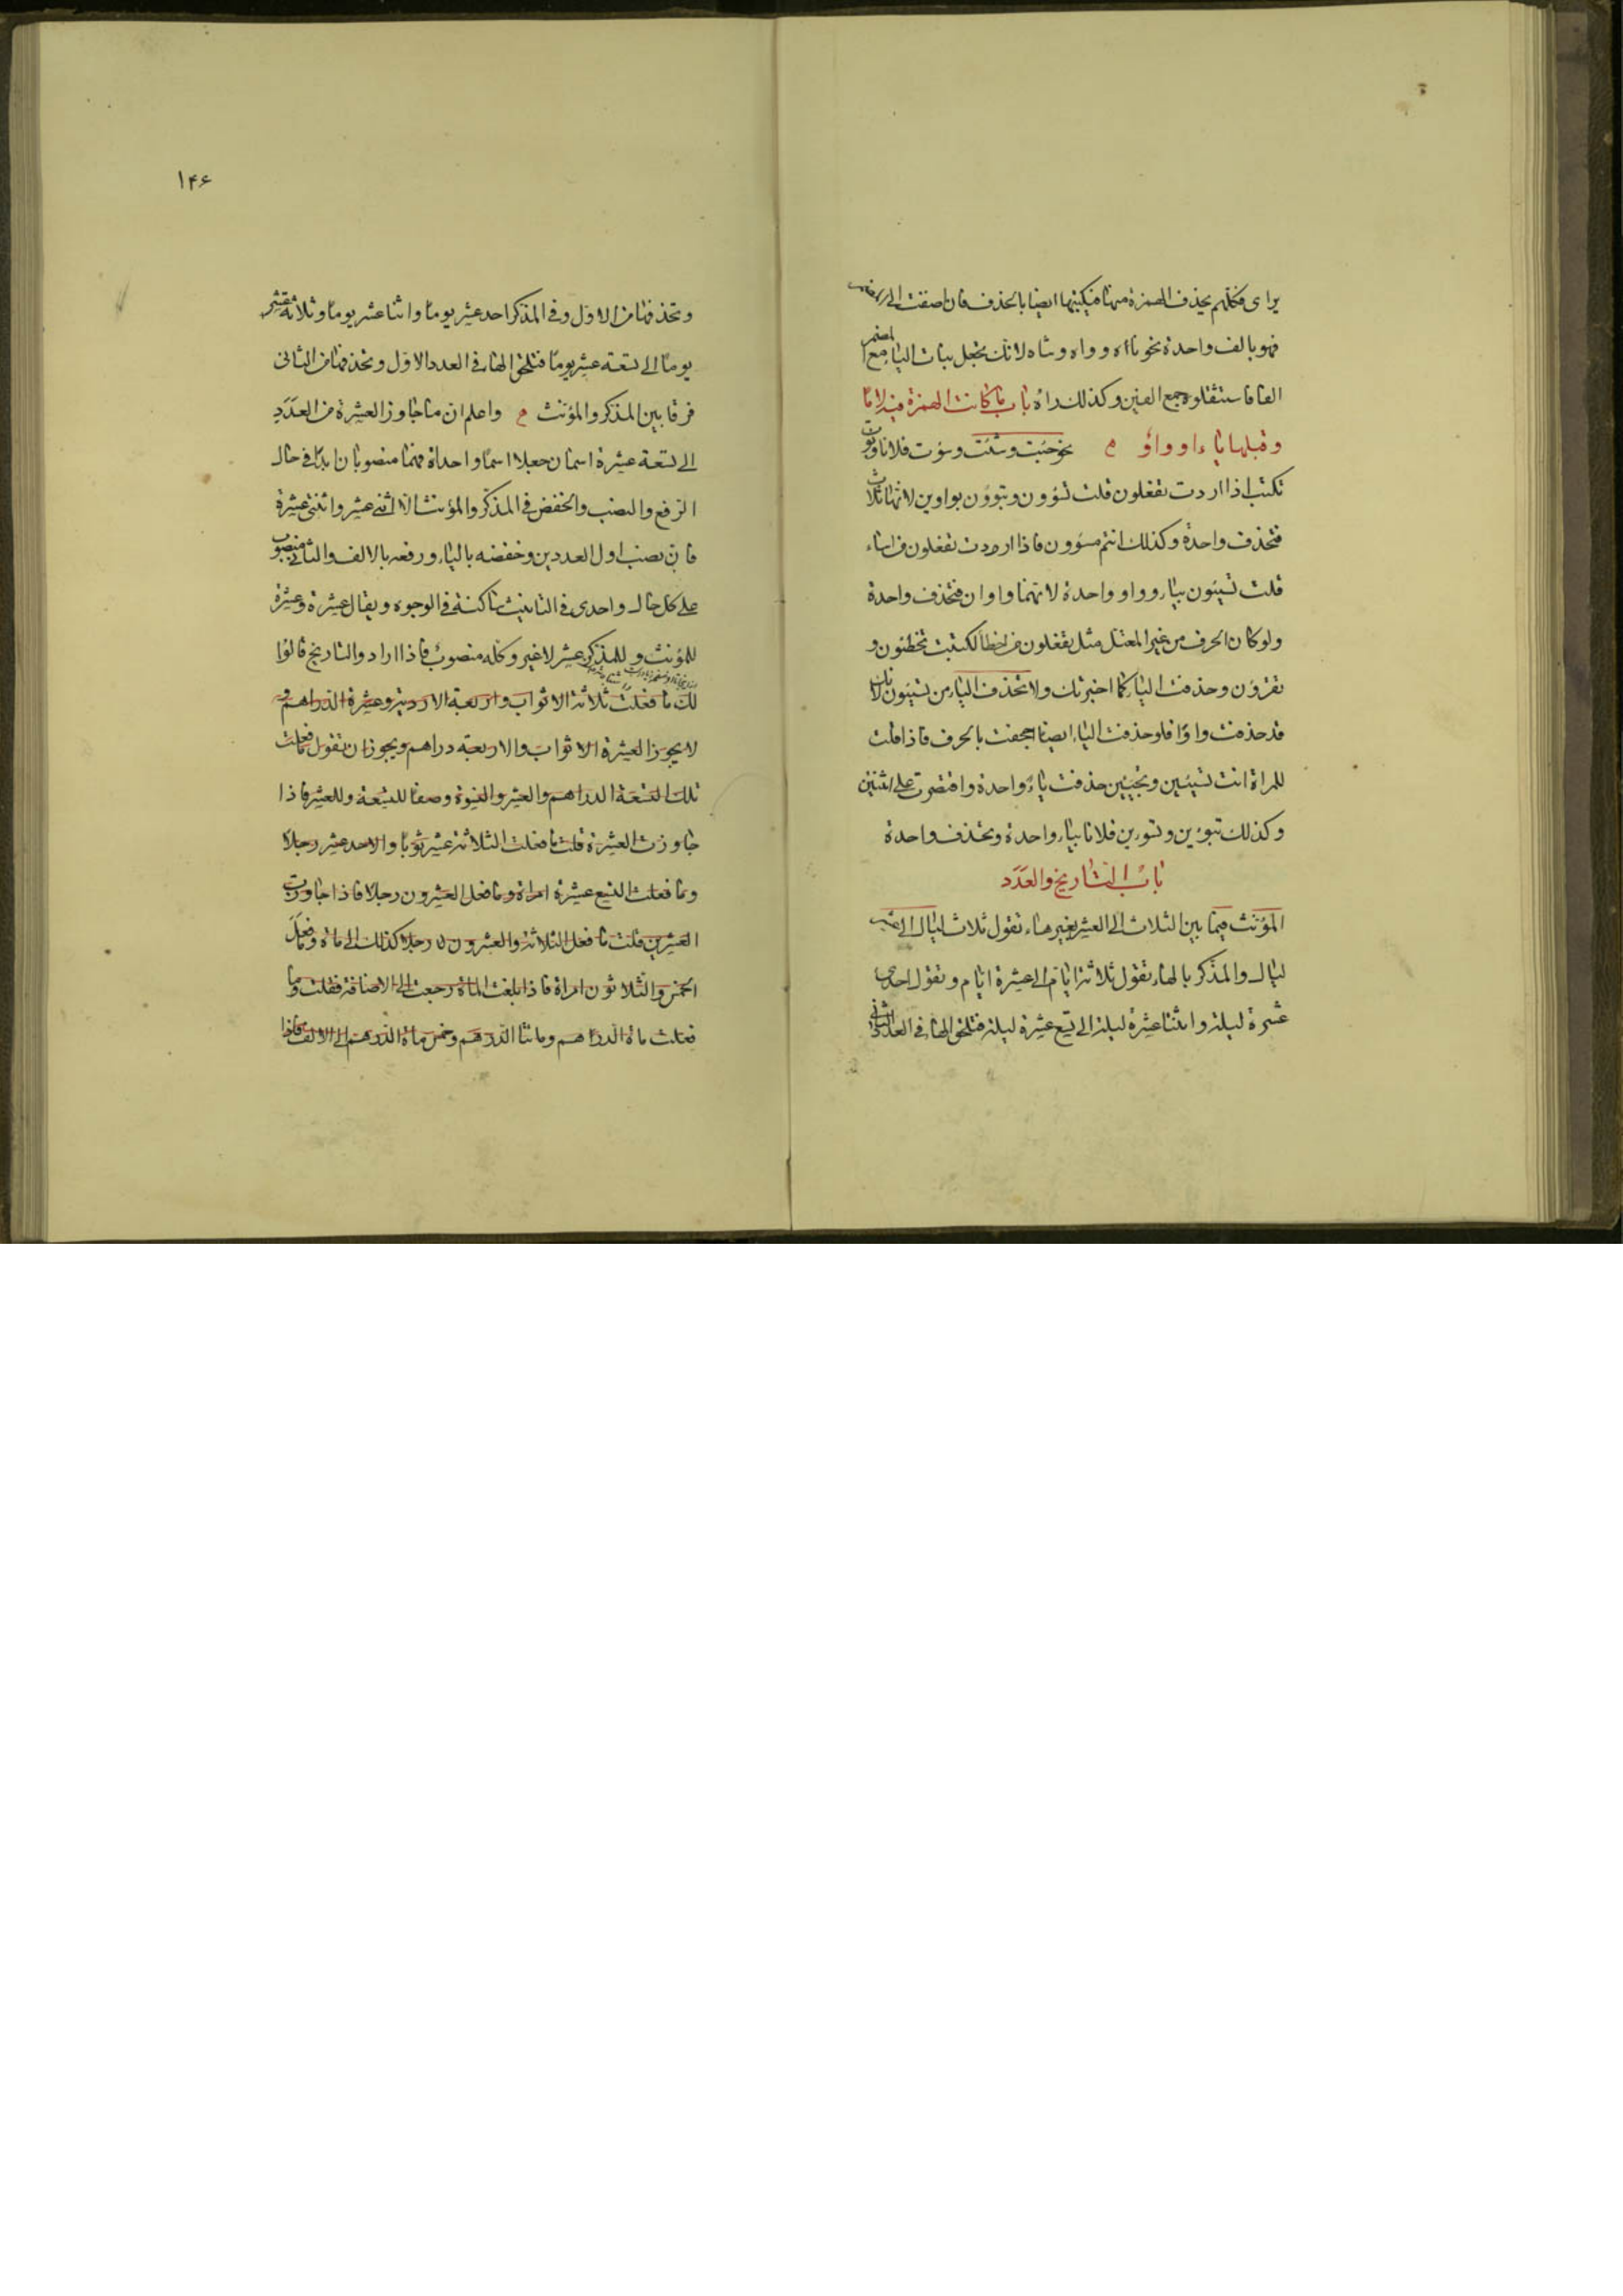 يرا ى فكلهم يحذف الهمزة منها فيكتبها ايضا بالحذف فان اضفت الى
فهو بالف واحدة نحو ناه و واه وشاه لانك تجعل بنات الياء مع المضمر
الفا فاستثقلوا جمع الفين وكذلك راه باب ما كانت الهمزة فيه لاما
وقبلها ياء او واو م نحو جئت وشئت وسؤت فلانا ونؤت
تكتب اذا اردت تفعلون قلت تسؤون وتنوؤن بواوين لانها ثلاث
فتحذف واحدة وكذلك انتم مسؤون فاذا اردت تفعلون من اساء
قلت تسيئون بياء وواو واحدة لانهما واوان فتحذف واحدة
ولو كان الحرف من غير المعتل مثل تفعلون من اخطأ لكتبت تخطئون و
تقرؤن وحذفت الياء كما اخبرتك ولا تحذف الياء من تسيئون لانك
قد حذفت واوًا فلو حذفت الياء ايضا اجحفت بالحرف فاذا قلت
للمراة انت تسيئين وتجيئين حذفت ياءً واحدة واقتصرت على اثنين
وكذلك تبوئين وتسوئين فلانا بياء واحدة وتحذف واحدة
باب التاريخ والعدد
المؤنث فيما بين الثلاث الى العشر بغير هاء تقول ثلاث ليال الى عشر
ليال والمذكر بالهاء تقول ثلاثة ايام الى عشرة ايام وتقول احدى
عشرة ليلة واثنتا عشرة ليلة الى تسع عشرة ليلة فتلحق الهاء في العدد الثاني
١۴۶
وتحذفها من الاول وفي المذكر احد عشر يومًا واثنا عشر يومًا وثلاثة عشر
يومًا الى تسعة عشر يومًا فتلحق الهاء في العدد الاول وتحذفها من الثاني
فرقا بين المذكر والمؤنث م واعلم ان ما جاوز العشرة من العدد
الى تسعة عشرة اسمان جعلا اسمًا واحدا فهما منصوبان ابدًا في حال
الرفع والنصب والخفض في المذكر والمؤنث الا اثنى عشر واثنتى عشرة
فان نصب اول العددين وخفضه بالياء ورفعه بالالف والثاني منصوب
على كل حال واحدى في التانيث ساكنة في الوجوه ويقال عشرة وعشرة
للمؤنث وللمذكر عشر لا غير وكله منصوب فاذا ارادوا التاريخ قالوا
لك ما فعلت ثلاثة الاثواب واربعة الاردية وعشرة الدراهم و
لا يجوز العشرة الاثواب والاربعة دراهم ويجوز ان تقول ما فعلت
تلك التسعة الدراهم والعشر والنسوة وصفا للتسعة وللعشر فاذا
جاوزت العشرة قلت ما فعلت الثلاثة عشر ثوبًا والاحد عشر رجلا
وما فعلت التسع عشرة امراة وما فعل العشرون رجلا فاذا جاوزت
العشرين قلت ما فعل الثلاثة والعشرون رجلا كذلك الى مائة وما فعل
الخمس والثلاثون امراة فاذا بلغت المائة رجعت الى الاضافة فقلت وما
فعلت مائة الدراهم ومائتا الدرهم وخمس مائة الدرهم الى الالف فاذا